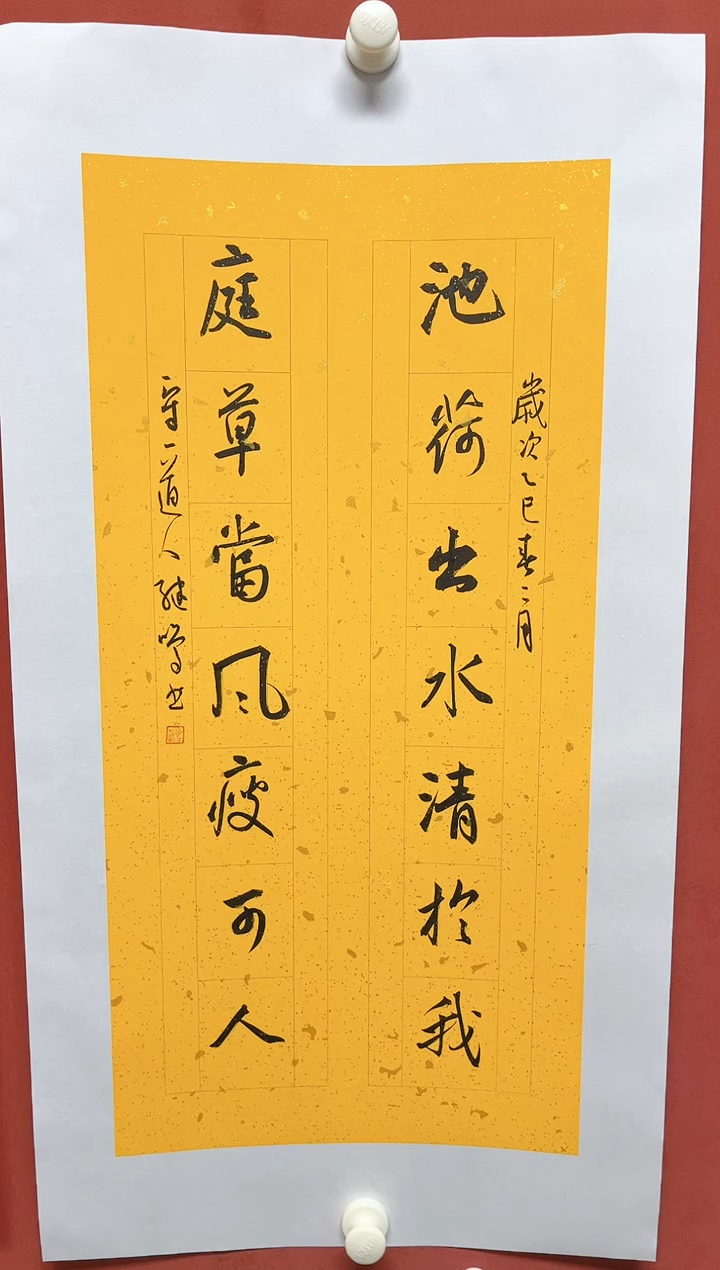 歲次乙巳春二月
池荷出水清於我
庭草當風瘦可人
守一道人繼鶯書